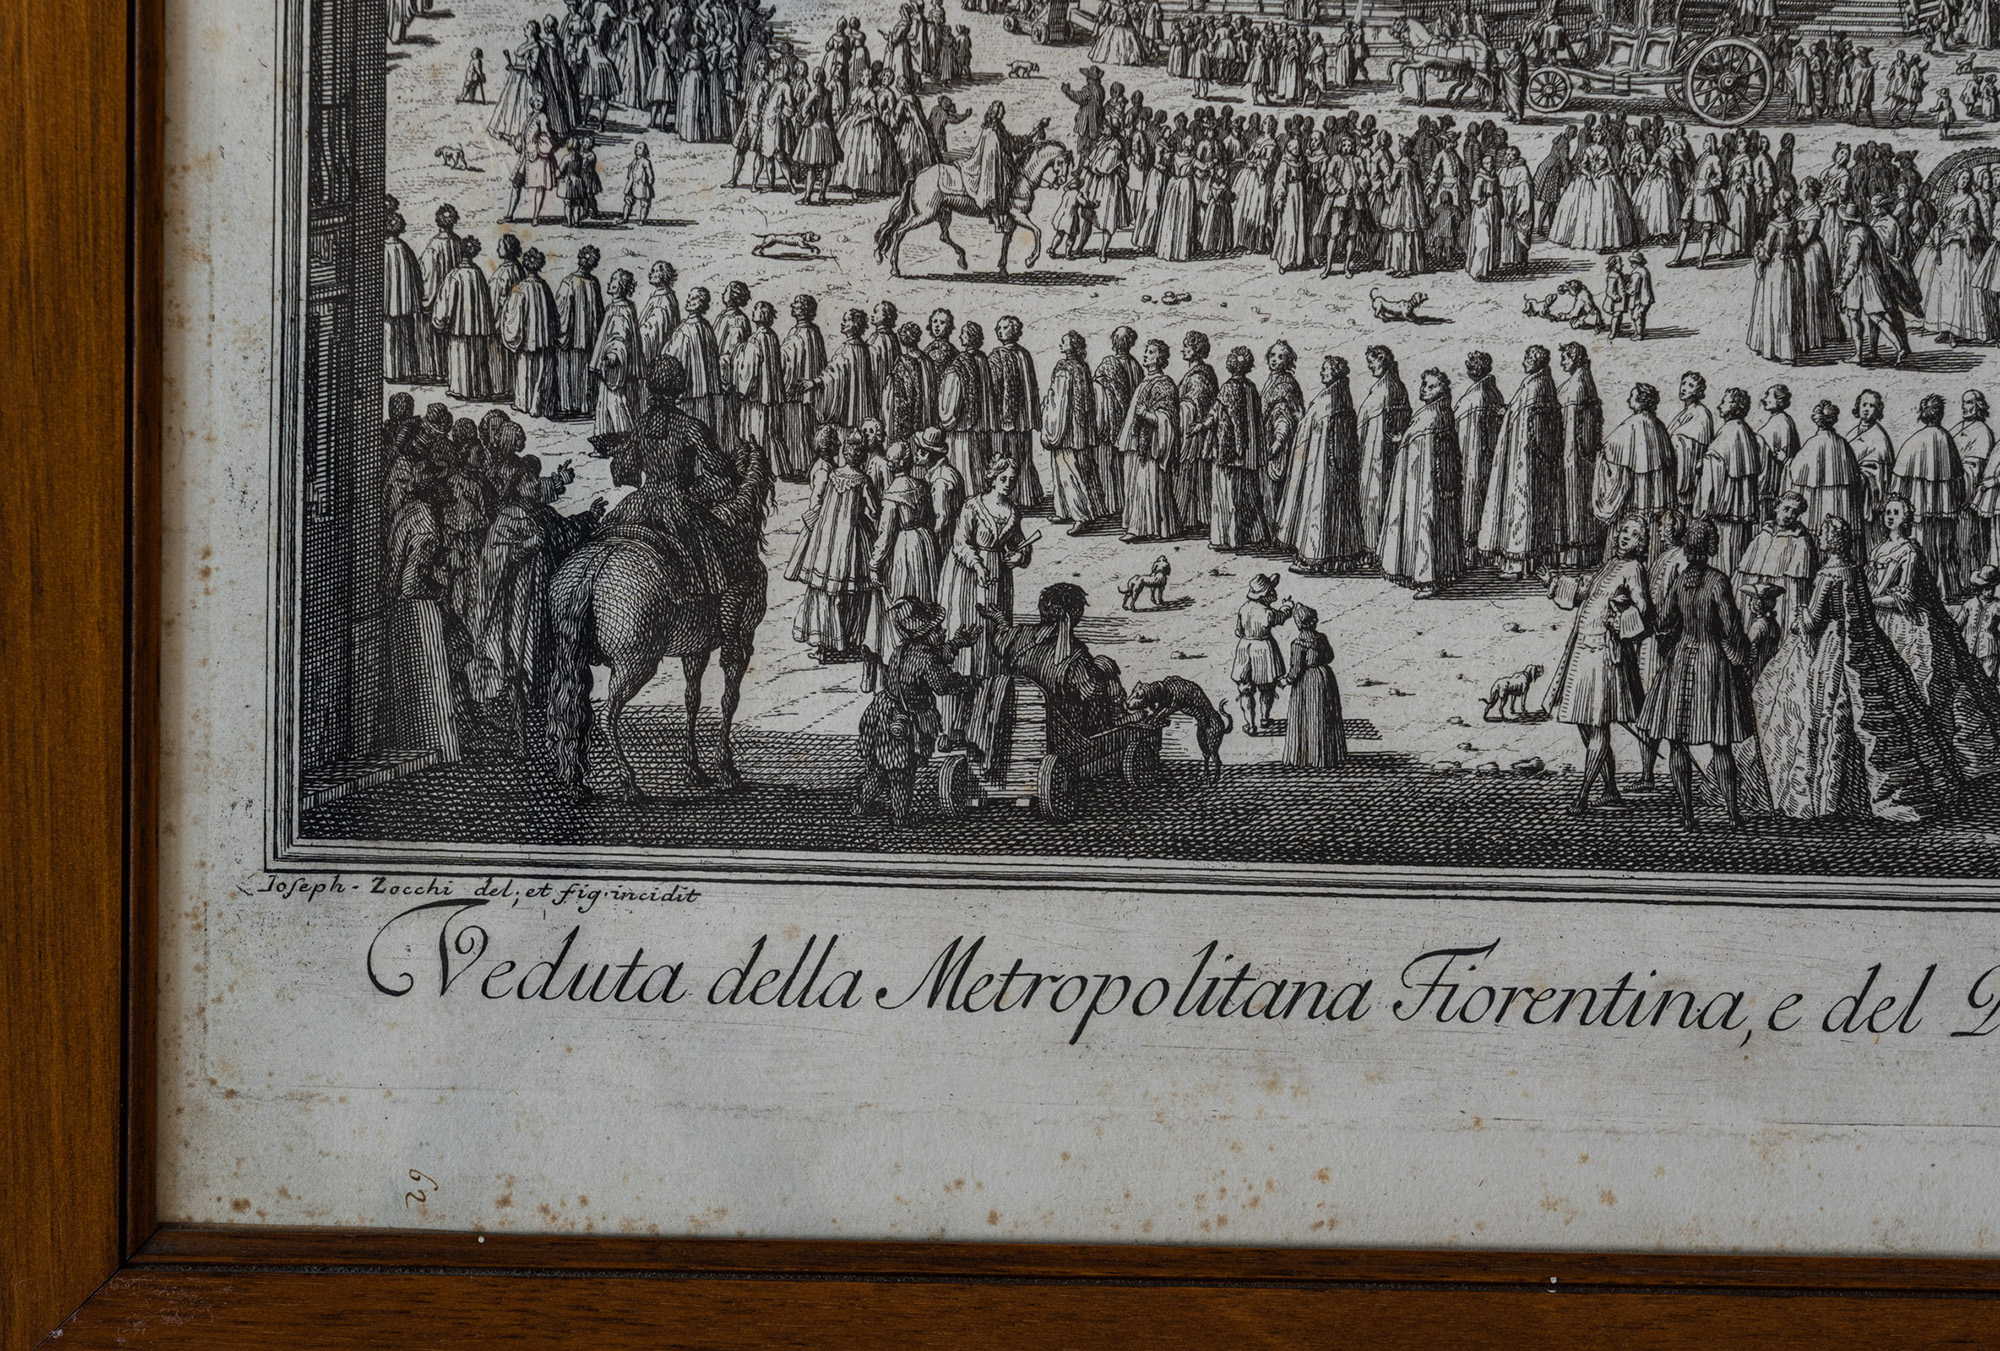 Ioſeph - Zocchi del; et fig. incidit
Veduta della Metropolitana Fiorentina, e del
62